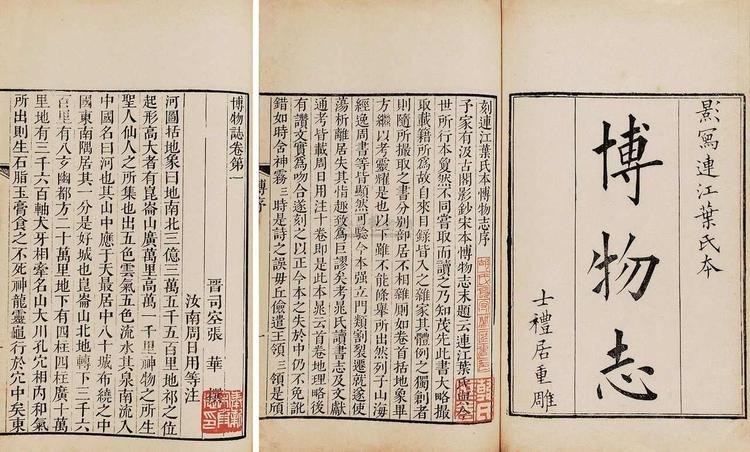 影寫連江葉氏本
博物志
士禮居重雕
刻連江葉氏本博物志序
予家有汲古閣影鈔宋本博物志末題云連江葉氏與今
世所行本夐然不同嘗取而讀之乃知茂先此書大略撮
取載籍所爲故自來目錄皆入之雜家其體例之獨創者
則隨所撮取之書分別部居不相雜廁如卷首括地象畢
方繼以考靈耀是也以下雖不能條舉所出然列子山海
經逸周書等皆顯然可驗今本强立門類割裂遷就遂使
蕩析離居失其指趣致爲巨謬矣考晁氏讀書志及文獻
通考皆載周日用注十卷則是此本晁云首卷地理略後
有讚文實爲吻合遂刻之以正今本之失於中仍不免訛
錯如時含神霧三時是詩之誤毋丘儉遣王領三領是頎
博序
博物誌卷第一
晉司空張華撰
汝南周日用等注
河圖括地象曰地南北三億三萬五千五百里地祁之位
起形高大者有崑崙山廣萬里高萬一千里神物之所生
聖人仙人之所集也出五色雲氣五色流水其泉南流入
中國名曰河也其山中應于天最居中八十城布繞之中
國東南隅居其一分是好城也崑崙山北地轉下三千六
百里有八玄幽都方二十萬里地下有四柱四柱廣十萬
里地有三千六百軸犬牙相牽名山大川孔穴相內和氣
所出則生石脂玉膏食之不死神龍靈龜行於穴中矣東